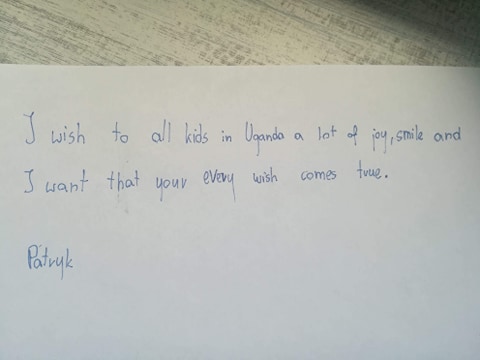 I wish to all kids in Uganda a lot of joy, smile and
I want that your every wish comes true.
Patryk